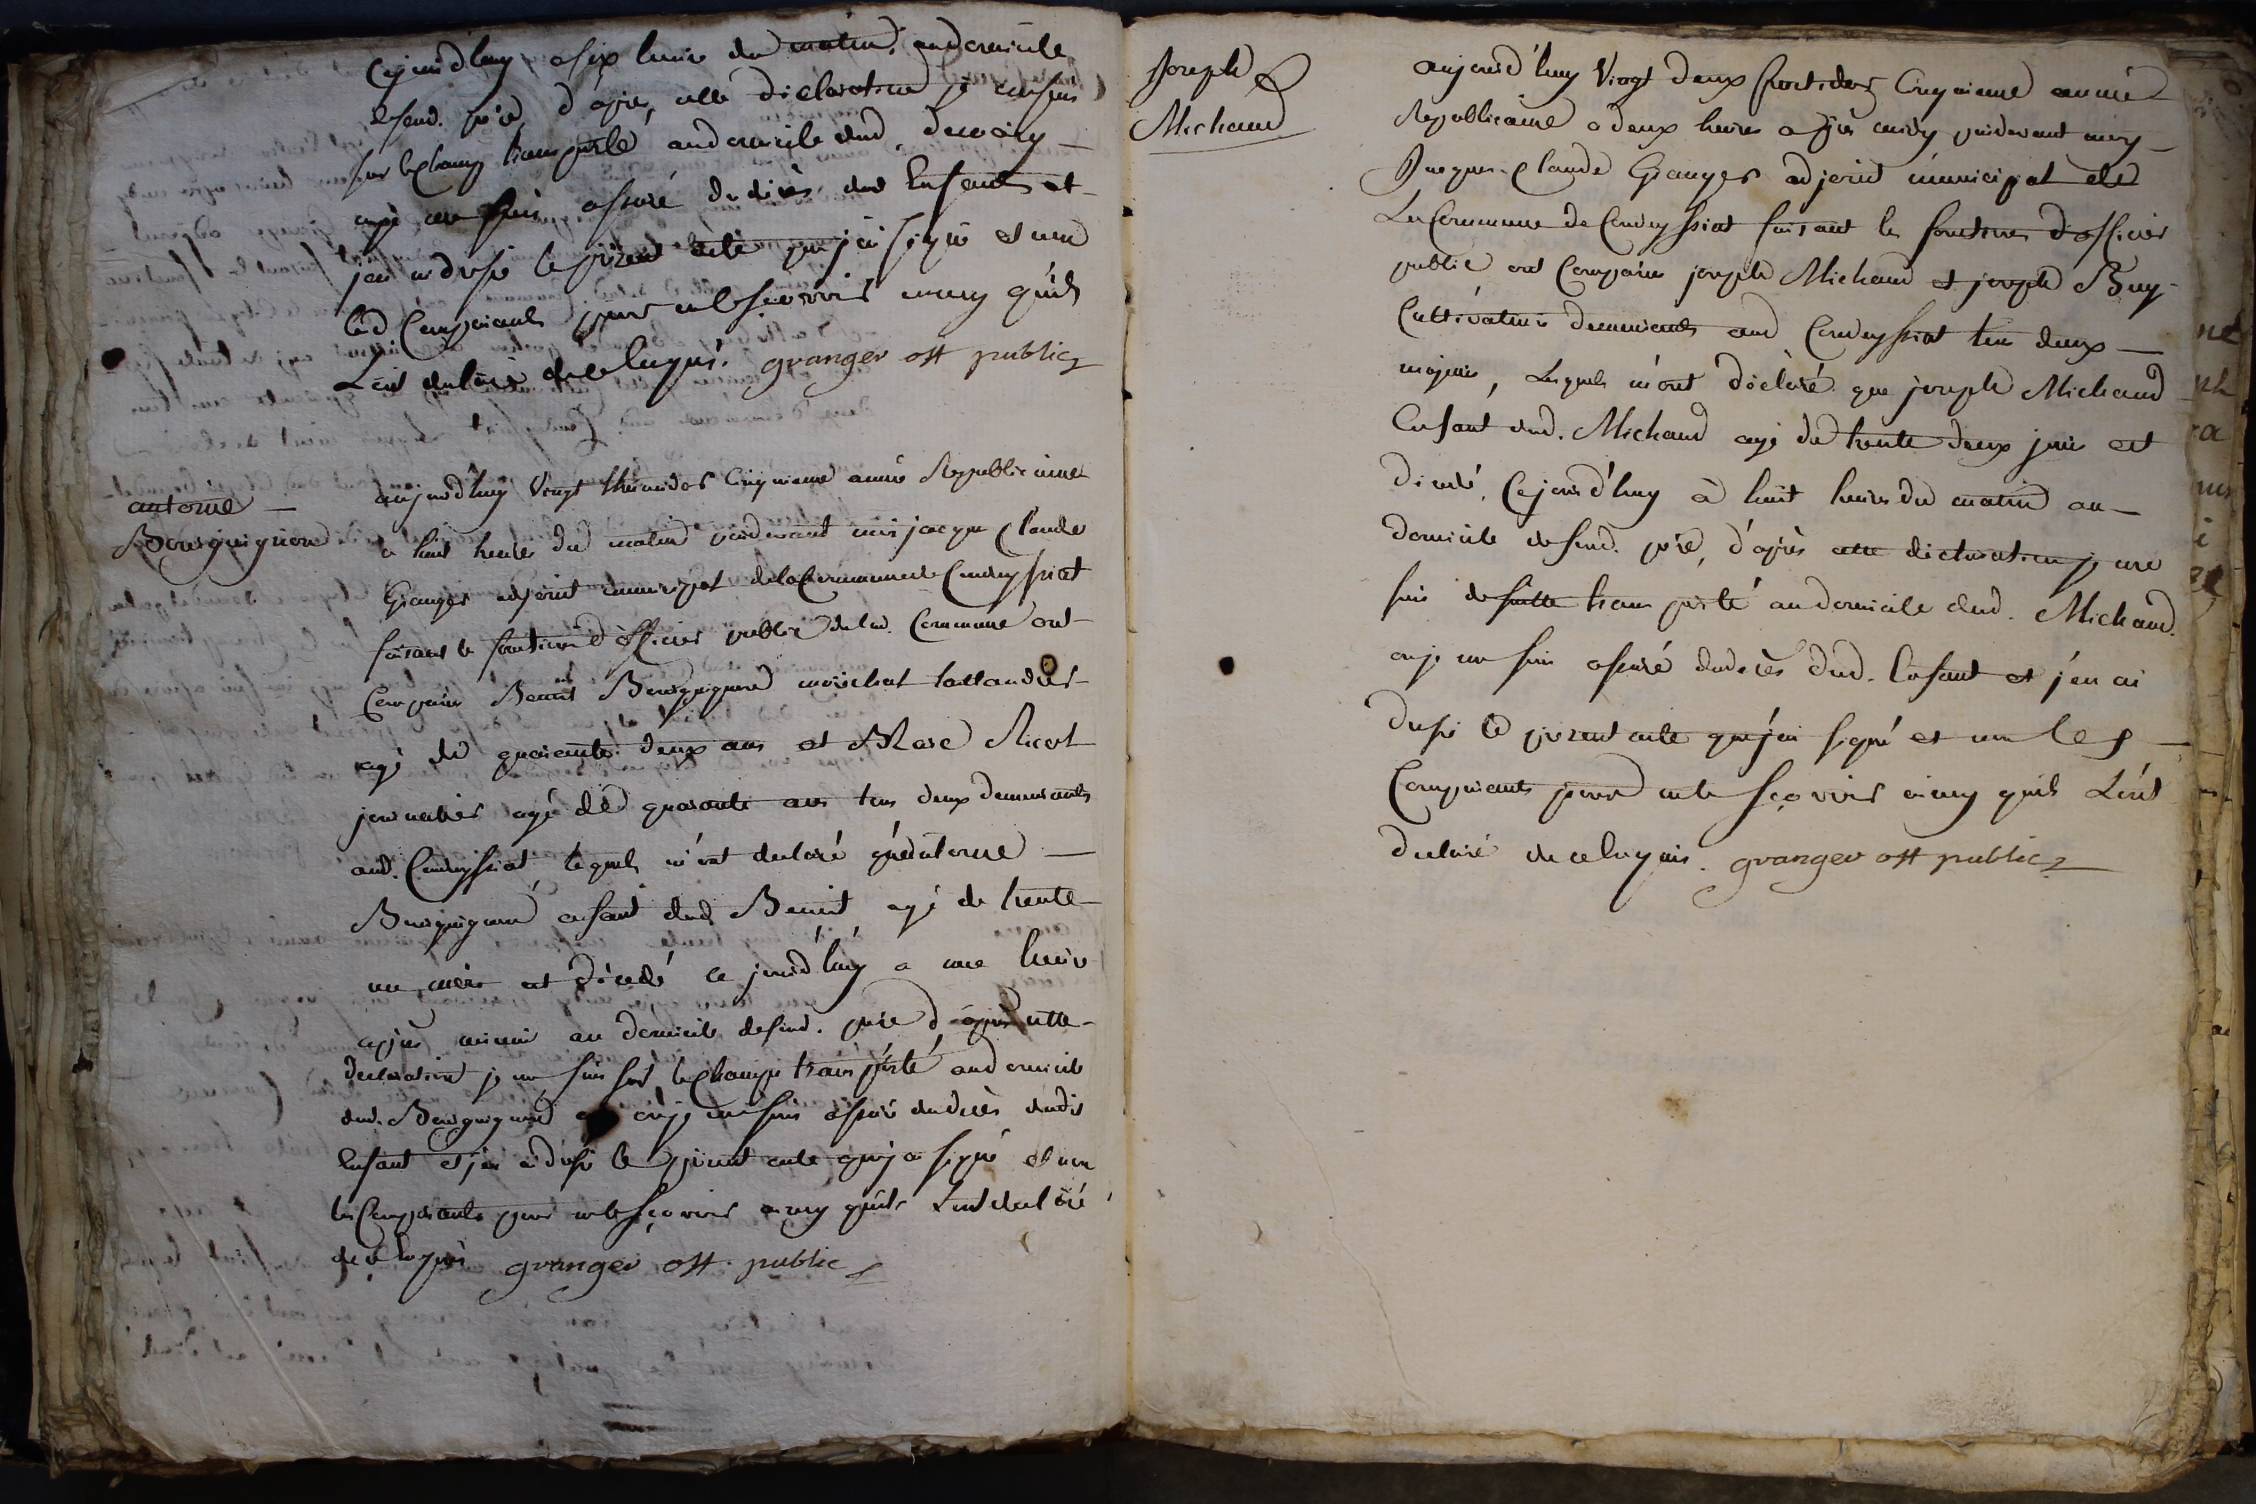 Cejourd'huy a six heures du matin au domicile
desond. père d'apres cette déclaration je me suis
sur le champ transporté au domicile dud.
ou je me suis assuré du décès dud Enfant et
j'en ai dressé le présent acte que j'ai signé et non
lesd Comparants pour ne le sçavoir ainsy qu'ils
L'ont déclaré de ce Enquis. granger off public
antoine
Bourguignon
aujourd'huy Vingt thermidor Cinquieme année Republicaine
a huit heures du matin pardevant moi jacque Claude
Granger adjoint municipal de la Commune de Condeyssiat
faisant les fonctions d'officier public de lad. Commune ont
Comparus Benoit Bourguignond maréchal taillandier
agé de quarante deux ans et Marc Nicol
journalier agé de quarante ans tous deux demeurants
aud. Condeyssiat, lesquels m'ont declaré qu'antoine
Bourguignond enfant dud Benoit agé de trente
un mois est décedé ce jourd'huy a une heure
après minuit au domicile desond. père d'après cette
declaration je me suis sur le champ transporté au domicile
dud. Bourguignond ou je me suis assuré du décès dudit
Enfant et j'en ai dressé le présent acte que j'ai signé et non
les Comparants pour ne le sçavoir ainsy qu'ils L'ont declaré
de ce Enquis granger off. public
Joseph
Michaud
aujourd'huy Vingt deux fructidor Cinquieme année
Republicaine a deux heures après midy pardevant moy
Jacques Claude Granger adjoint municipal de
La Commune de Condeyssiat faisant les fonctions d'officier
public ont Comparus joseph Michaud et joseph Buy
Cultivateurs demeurants aud Condeyssiat tous deux
majeurs, Lesquels m'ont déclaré que joseph Michaud
Enfant dud. Michaud agé de trente deux jours est
décédé, Cejourd'huy à huit heures du matin au
domicile desond. père, d'après cette declaration je me
suis de suitte transporté au domicile dud. Michaud
ou je me suis assuré du décès dud. Enfant et j'en ai
dressé le présent acte que j'ai signé et non les
Comparants pour ne le sçavoir ainsy qu'ils L'ont
declaré de ce Enquis. granger off public